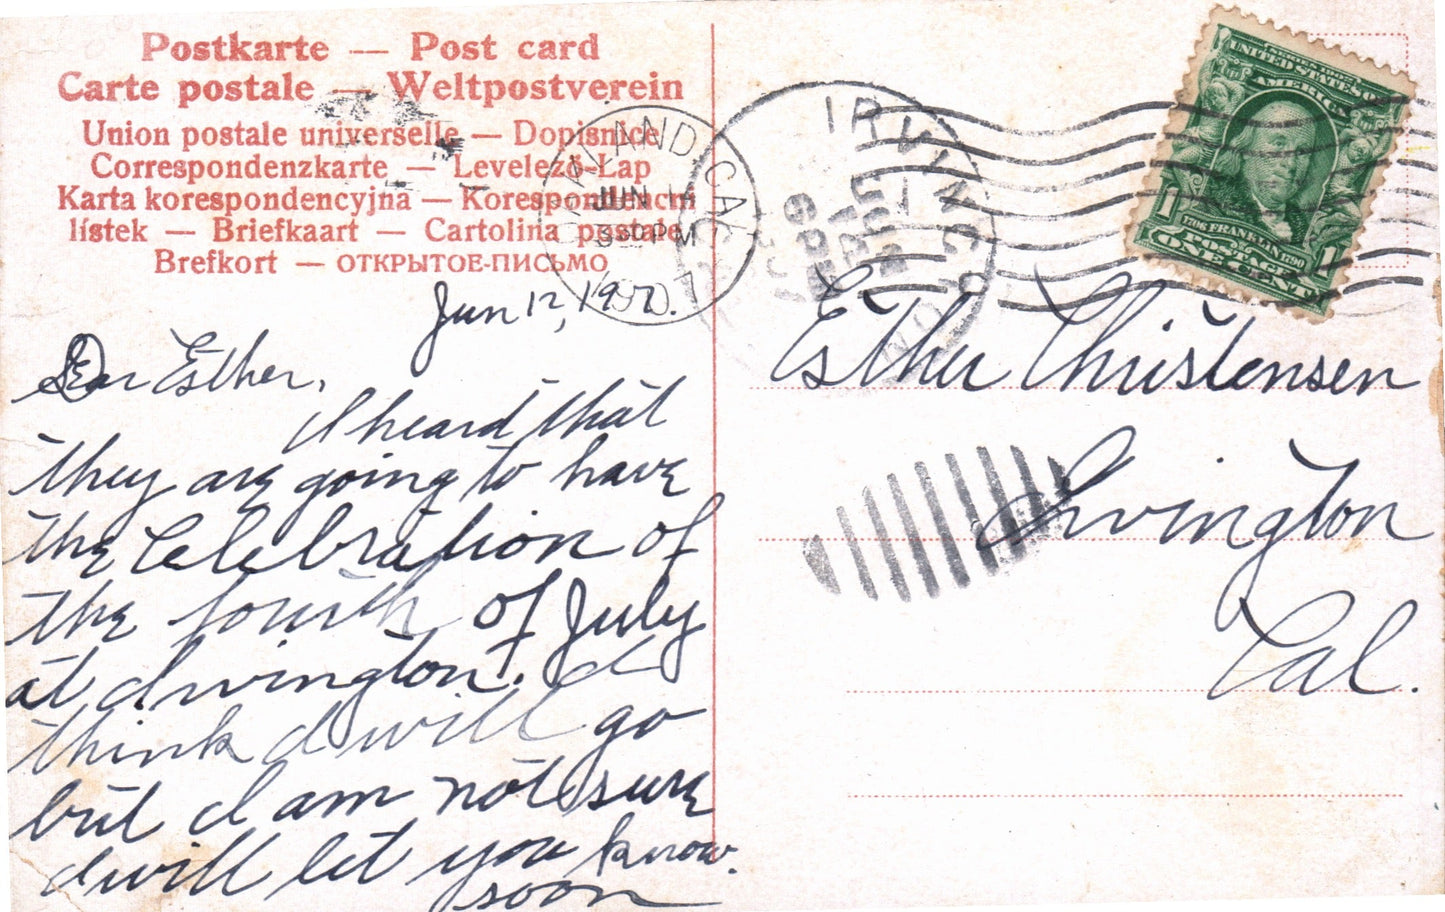 Postkarte — Post card
Carte postale — Weltpostverein
Union postale universelle — Dopisnice
Correspondenzkarte — Levelező-Lap
Karta korespondencyjna — Korespondencní
lístek — Briefkaart — Cartolina postale
Brefkort — ОТКРЫТОЕ-ПИСЬМО
Jun 12, 190
Dear Esther,
I heard that
they are going to have
the Celebration of
the fourth of July
at Irvington. I
think I will go
but I am not sure
I will let you know.
soon
OAKLAND, CAL.
JUN
3-PM
IRVING
SERIES 1902
UNITED STATES OF
AMERICA
1706 FRANKLIN 1790
POSTAGE
1 ONE CENT 1
Esther Christensen
Irvington
Cal.